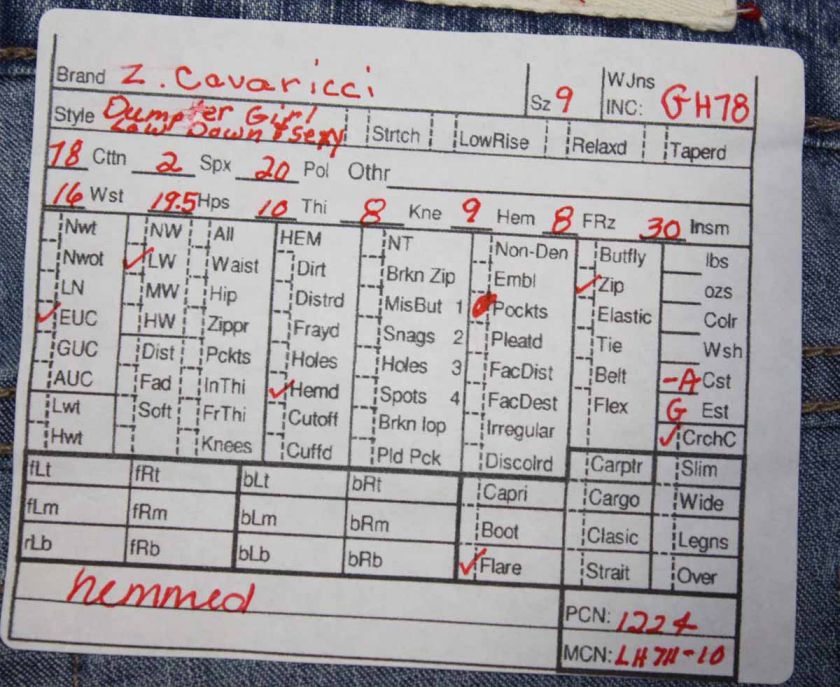 Brand Z. Cavaricci Sz 9 WJns INC: GH78
Style Dumpster Girl Low Down & Sexy Strtch LowRise Relaxd Taperd
78 Cttn 2 Spx 20 Pol Othr
16 Wst 19.5 Hps 10 Thi 8 Kne 9 Hem 8 FRz 30 Insm
Nwt NW All HEM NT Non-Den Butfly lbs
Nwot LW Waist Dirt Brkn Zip Embl Zip ozs
LN MW Hip Distrd MisBut 1 Pockts Elastic Colr
EUC HW Zippr Frayd Snags 2 Pleatd Tie Wsh
GUC Dist Pckts Holes Holes 3 FacDist Belt -A Cst
AUC Fad InThi Hemd Spots 4 FacDest Flex G Est
Lwt Soft FrThi Cutoff Brkn lop Irregular CrchC
Hwt Knees Cuffd Pld Pck Discolrd Carptr Slim
fLt fRt bLt bRt Capri Cargo Wide
fLm fRm bLm bRm Boot Clasic Legns
rLb fRb bLb bRb Flare Strait Over
hemmed PCN: 1224
MCN: LH711-10